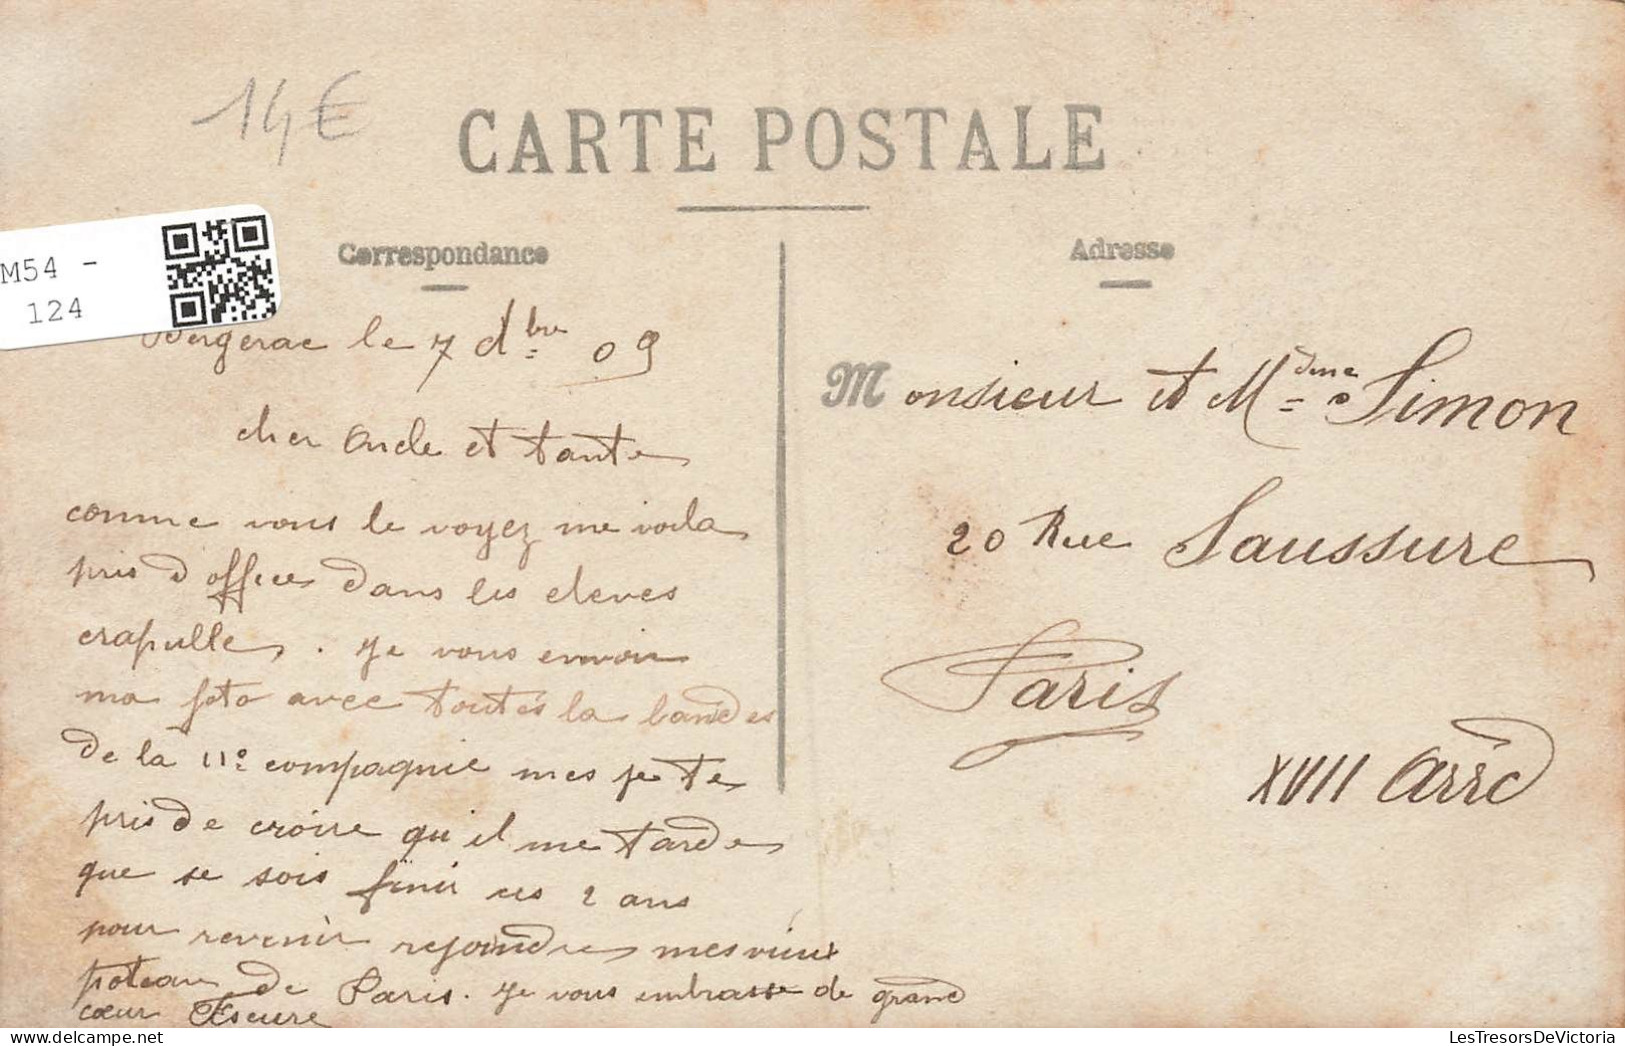 14€
CARTE POSTALE
M54 -
124
Correspondance
Adresse
Bergerac le 7 dbre 09
cher Oncle et tante
comme vous le voyez me voila
pris d'office dans les eleves
crapulle. Je vous envoir
ma foto avec toutes la bandes
de la 11e compagnie mes je te
pris de croire qu'il me tarde
que se sois finir ces 2 ans
pour revenir rejoindre mes vieux
poteau de Paris. Je vous embrasse de grand
cœur
Monsieur et Mdme Simon
20 Rue Saussure
Paris
XVII Arrd
LesTresorsDeVictoria